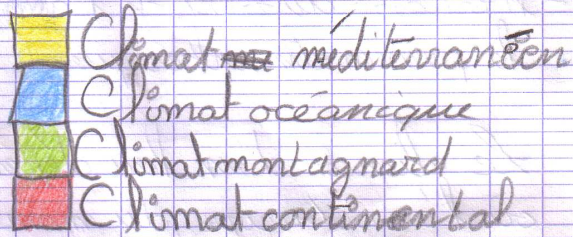 Climat méditerranéen
Climat océanique
Climat montagnard
Climat continental